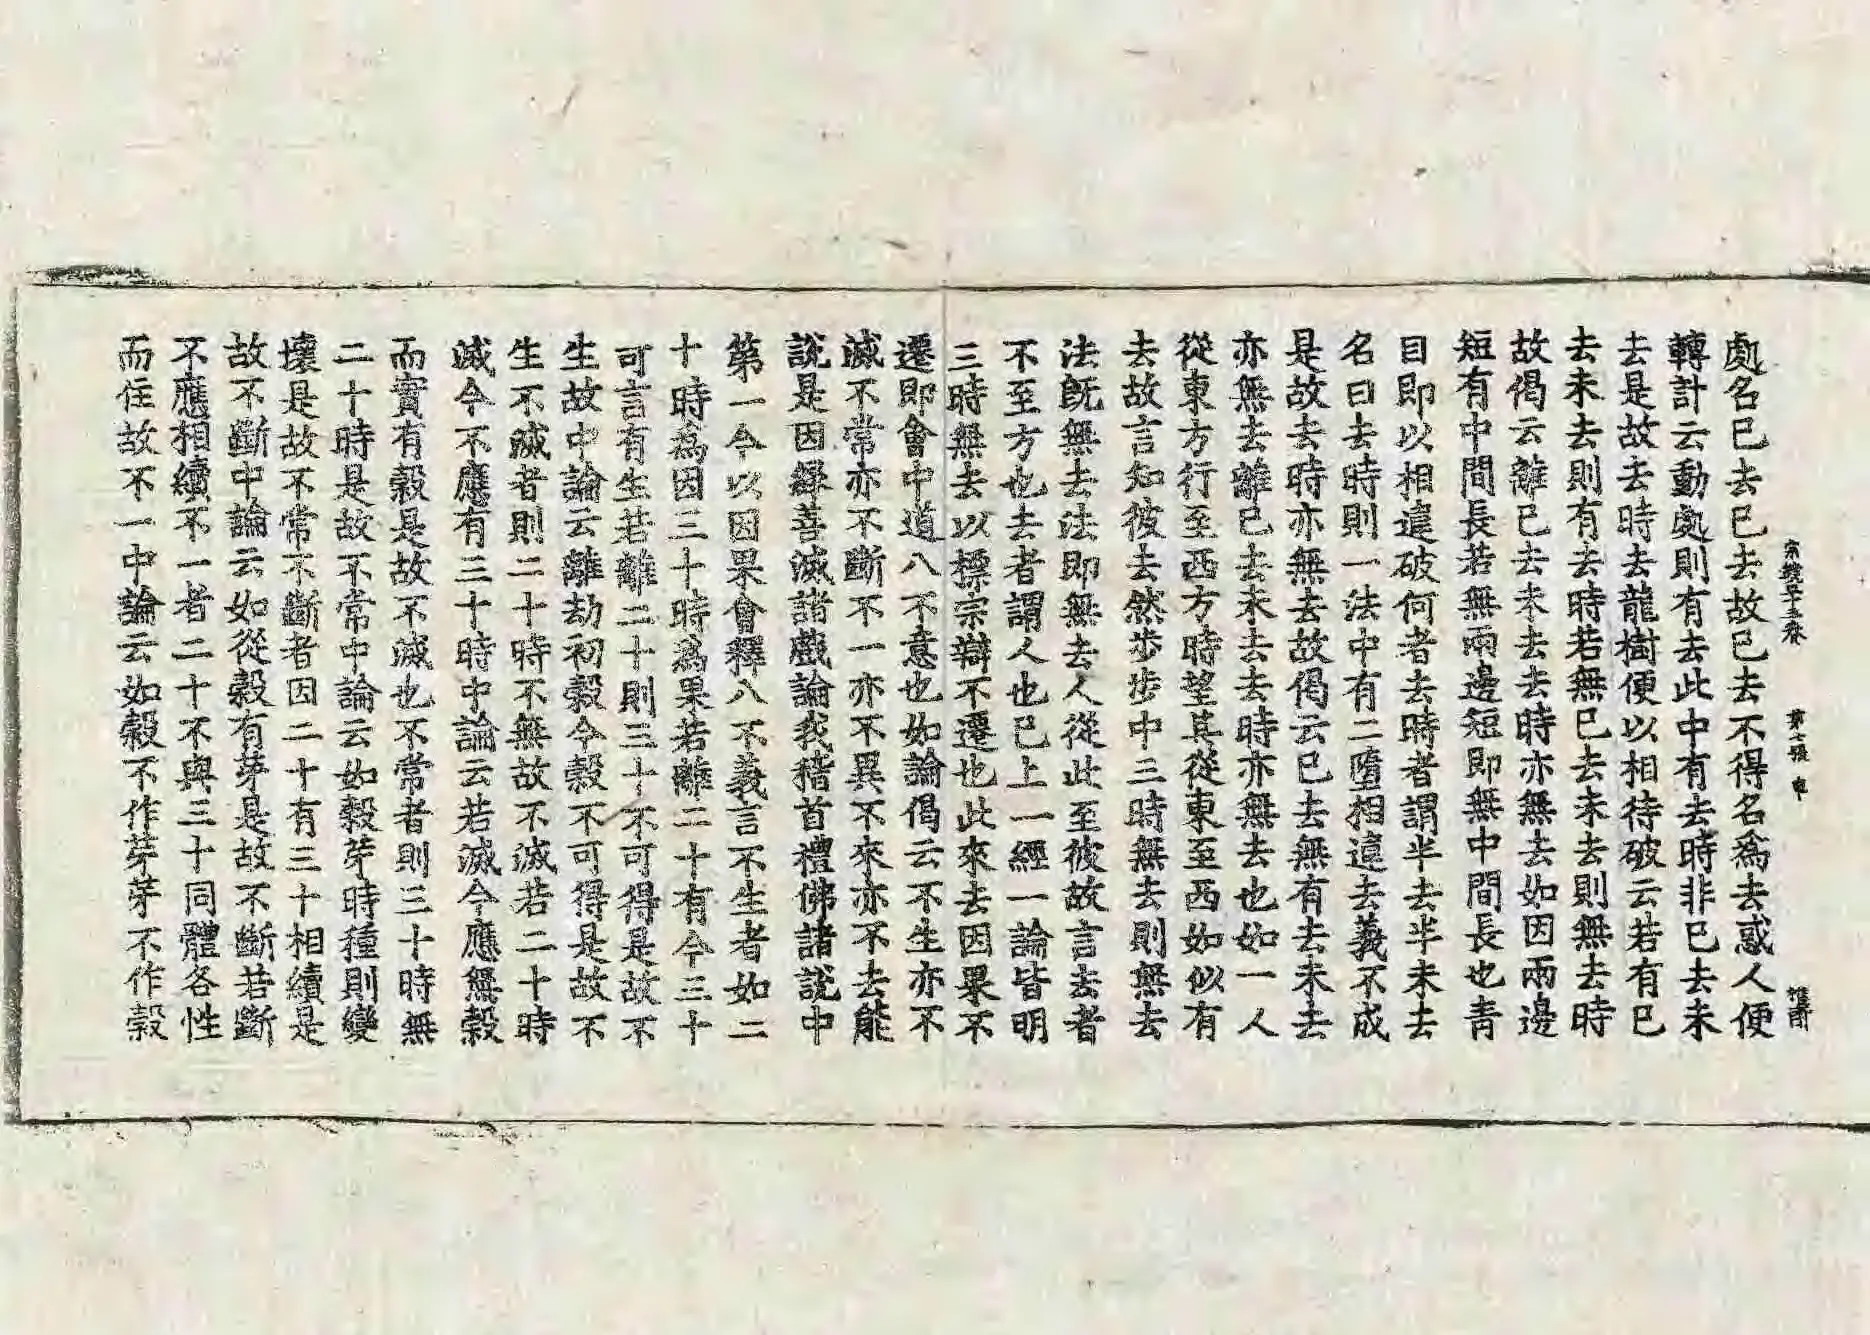 宗鏡三十三卷 第七張 車 惟甫
處名已去已去故已去不得名為去惑人便
轉計云動處則有去此中有去時非已去未
去是故去時去龍樹便以相待破云若有已
去未去則有去時若無已去未去則無去時
故偈云離已去未去去時亦無去如因兩邊
短有中間長若無兩邊短即無中間長也青
目即以相違破何者去時者謂半去半未去
名曰去時則一法中有二墮相違去義不成
是故去時亦無去故偈云已去無有去未去
亦無去離已去未去去時亦無去也如一人
從東方行至西方時望其從東至西如似有
去故言知彼去然步步中三時無去則無去
法旣無去法即無去人從此至彼故言去者
不至方也去者謂人也已上一經一論皆明
三時無去以標宗辯不遷也此來去因果不
遷即會中道八不意也如論偈云不生亦不
滅不常亦不斷不一亦不異不來亦不去能
說是因緣善滅諸戲論我稽首禮佛諸說中
第一今以因果會釋八不義言不生者如二
十時為因三十時為果若離二十有今三十
可言有生若離二十則三十不可得是故不
生故中論云離劫初穀今穀不可得是故不
生不滅者則二十時不無故不滅若二十時
滅今不應有三十時中論云若滅今應無穀
而實有穀是故不滅也不常者則三十時無
二十時是故不常中論云如穀芽時種則變
壞是故不常不斷者因二十有三十相續是
故不斷中論云如從穀有芽是故不斷若斷
不應相續不一者二十不與三十同體各性
而住故不一中論云如穀不作芽芽不作穀